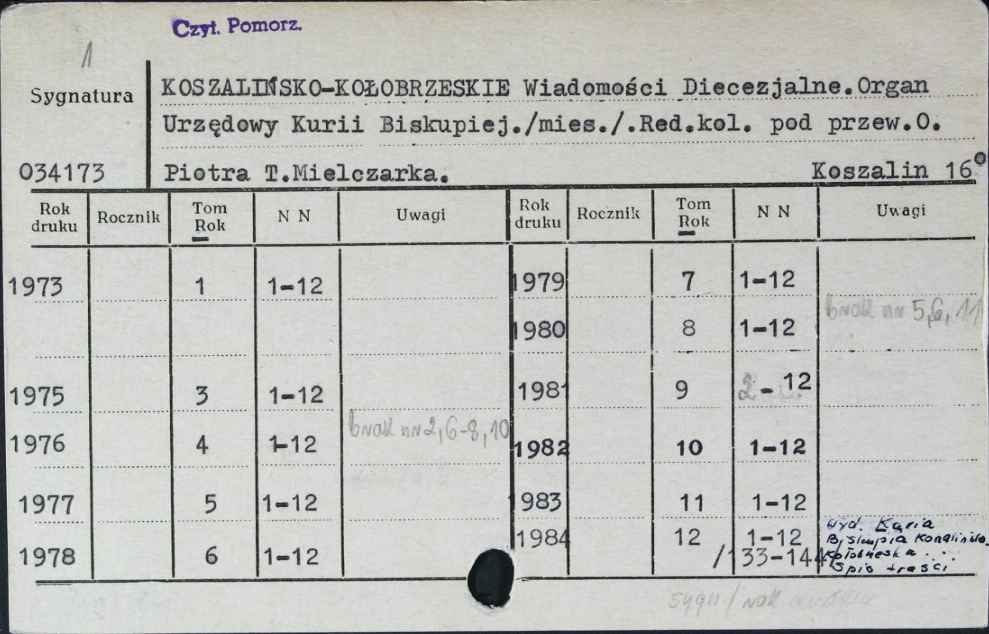 Czyt. Pomorz.
1
Sygnatura
034173
KOSZALIŃSKO-KOŁOBRZESKIE Wiadomości Diecezjalne.Organ
Urzędowy Kurii Biskupiej./mies./.Red.kol. pod przew.O.
Piotra T.Mielczarka. Koszalin 16°
Rok druku Rocznik Tom Rok N N Uwagi Rok druku Rocznik Tom Rok N N Uwagi
1973 1 1-12 1979 7 1-12
brak nr 5,6,11
1980 8 1-12
1975 3 1-12 1981 9 2-12
brak nr 2,6-8,10
1976 4 1-12 1982 10 1-12
1977 5 1-12 1983 11 1-12
1978 6 1-12 1984 12 1-12
/133-144
Wyd. Kuria
Spis treści